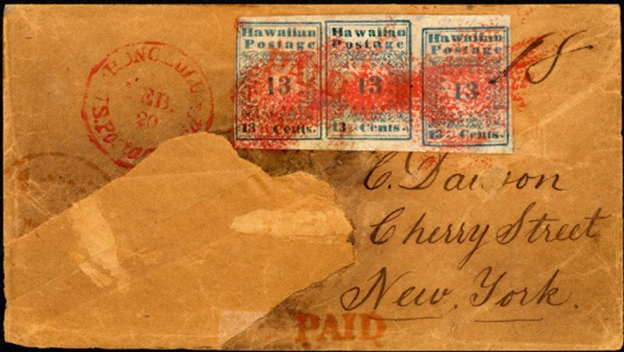 HONOLULU
EB.
20
Hawaiian
Postage
13
13 Cents.
Hawaiian
Postage
13
13 Cents.
Hawaiian
Postage
13
13 Cents.
18
C. Dawson
Cherry Street
New. York.
PAID